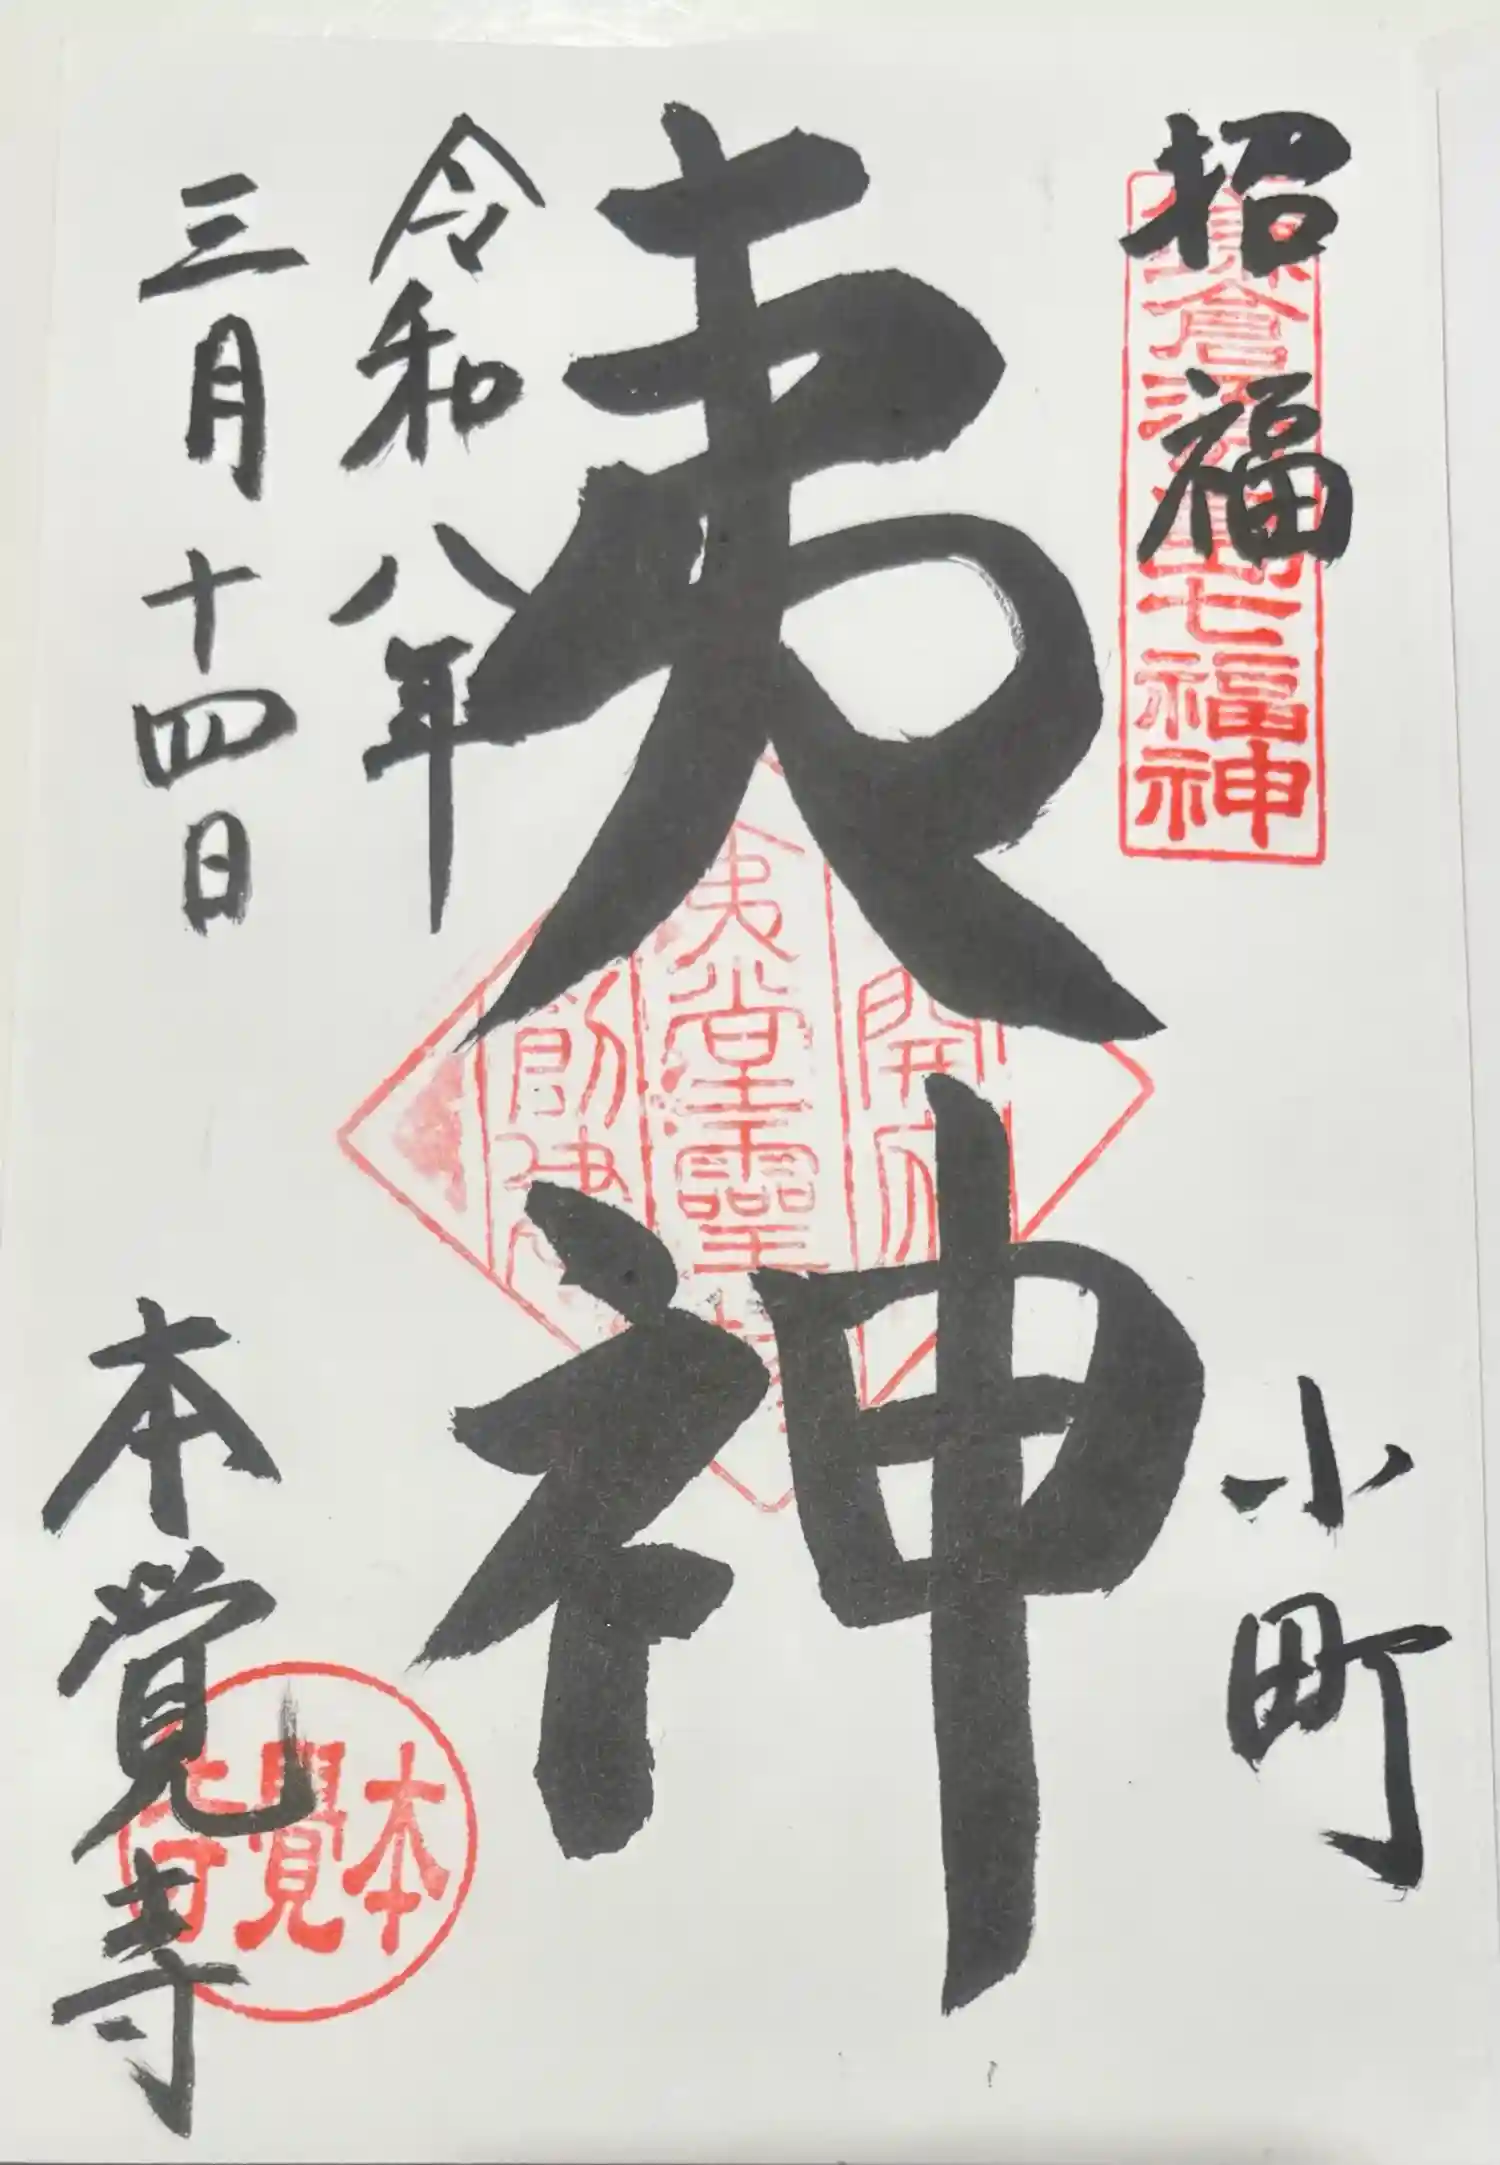 招福
鎌倉江の島七福神
小町
夷神
開府
夷堂霊場
創建
令和八年
三月十四日
本覚寺
本覺寺